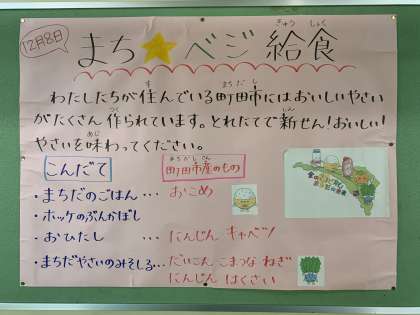 12月8日
まち★ベジ給食
きゅう しょく
わたしたちが住んでいる町田市にはおいしいやさい
がたくさん作られています。とれたてで新せん！おいしい！
やさいを味わってください。
こんだて
町田市産のもの
・まちだのごはん… おこめ
・ホッケのぶんかぼし
・おひたし … にんじん キャベツ
・まちだやさいのみそしる… だいこん こまつな ねぎ
にんじん はくさい